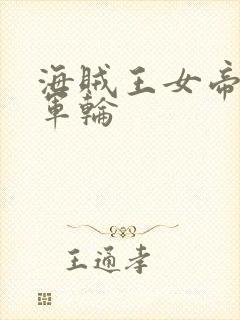 海賊王女帝
軍輪
王通孝